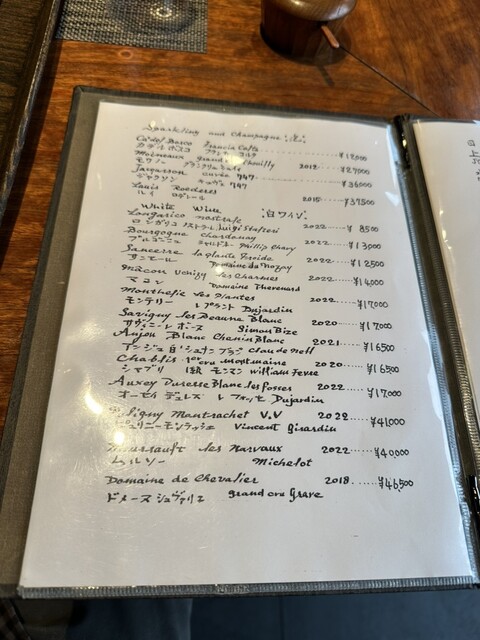 Sparkling and Champagne 泡
Ca'del Bosco Francia Corta ¥12500
カデル ボスコ フランチャ コルタ
Moineaux Grand 2012 ¥27000
モワノー
Jacquesson cuvée 747 ¥36000
ジャクソン キュヴェ 747
Louis Roederer 2015 ¥37500
ルイ ロデレール
White Wine 白ワイン
Longarico nostrale Luigi Stefini 2022 ¥8500
ロンガリコ
Bourgogne chardonay 2022 ¥13000
ブルゴーニュ シャルドネー Phillip
Sancerre la plante Froide 2022 ¥12500
サンセール Domaine du Nozay
Mâcon uchizy les Charmes 2022 ¥14000
マコン Domaine Thevenard
Monthelie les Plantes 2022 ¥17000
モンテリー レプラント Dujardin
Savigny les Beaune Blanc 2020 ¥17000
サヴィニール ボーヌ Simon Bize
Anjou Blanc Chenin Blanc 2021 ¥16500
アンジュ 白 シュナンブラン
Chablis 1er cru Montmaine 2020 ¥16500
シャブリ 1級 モンマン William Fevre
Auxey Duresse Blanc les fosses 2022 ¥17000
オーセイ デュレス レ フォッセ Dujardin
Puligny Montrachet V.V 2022 ¥41000
ピュリニーモンラッシェ Vincent Girardin
Meursault les Narvaux 2022 ¥40000
ムルソー Michelot
Domaine de Chevalier 2018 ¥46500
ドメーヌ シュヴァリエ Grand cru Grave